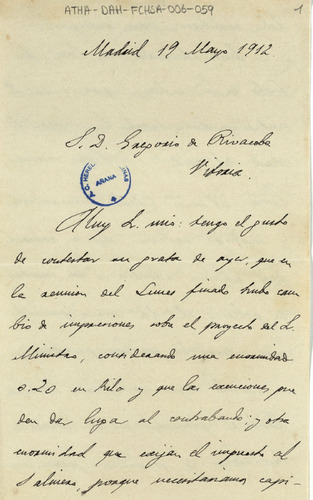 ATHA-DAH-FCHSA-006-059
1
Madrid 19 Mayo 1912
S. D. Gregorio de Rivacoba
Vitoria.
ARANA
Muy S. mio: tengo el gusto
de contestar su grata de ayer, que en
la reunion del Lunes pasado hubo cam
bio de impresiones sobre el proyecto del S.
Ministro, considerando una enormidad
0.20 en kilo y que las exenciones pue
den dar lugar al contrabando; y otra
enormidad que exijan el impuesto al
salinero, porque necesitariamos capi-